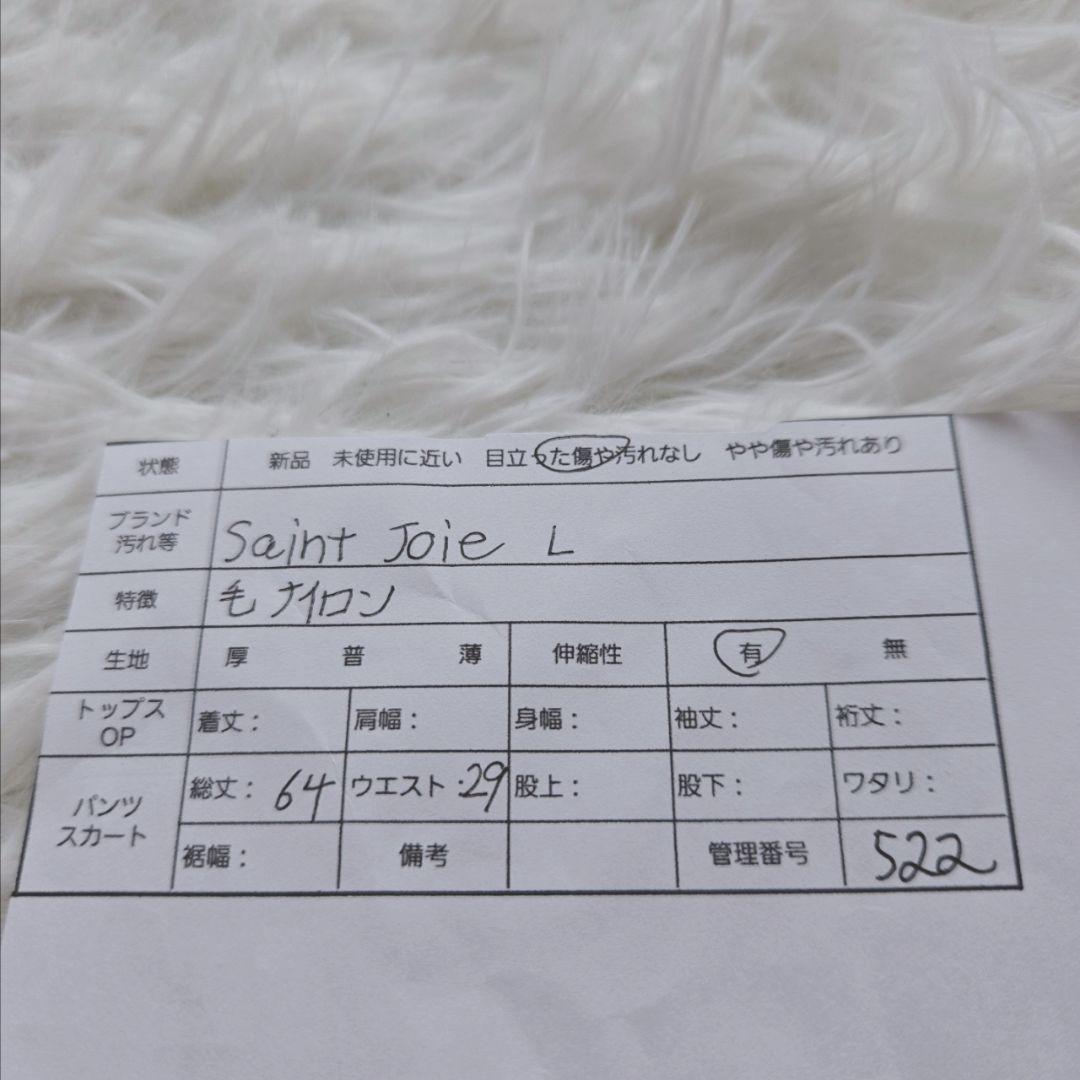 状態 新品 未使用に近い 目立った傷や汚れなし やや傷や汚れあり
ブランド
汚れ等 Saint Joie L
特徴 毛 ナイロン
生地 厚 普 薄 伸縮性 有 無
トップス
OP 着丈： 肩幅： 身幅： 袖丈： 裄丈：
パンツ
スカート 総丈： 64 ウエスト：29 股上： 股下： ワタリ：
裾幅： 備考 管理番号 522